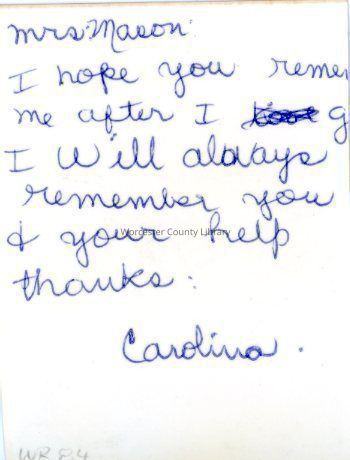 mrs. Mason:
I hope you remem
me after I g
I will always
remember you
& your help
Worcester County Library
thanks:
Carolina.
WR 84